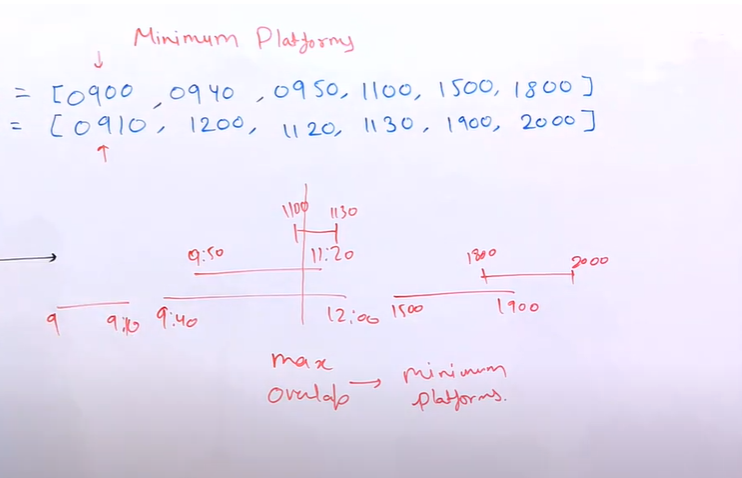 Minimum Platforms
= [0900, 0940, 0950, 1100, 1500, 1800]
= [0910, 1200, 1120, 1130, 1900, 2000]
1100 1130
9:50 11:20 1800 2000
9 9:10 9:40 12:00 1500 1900
max minimum
overlap → platforms.